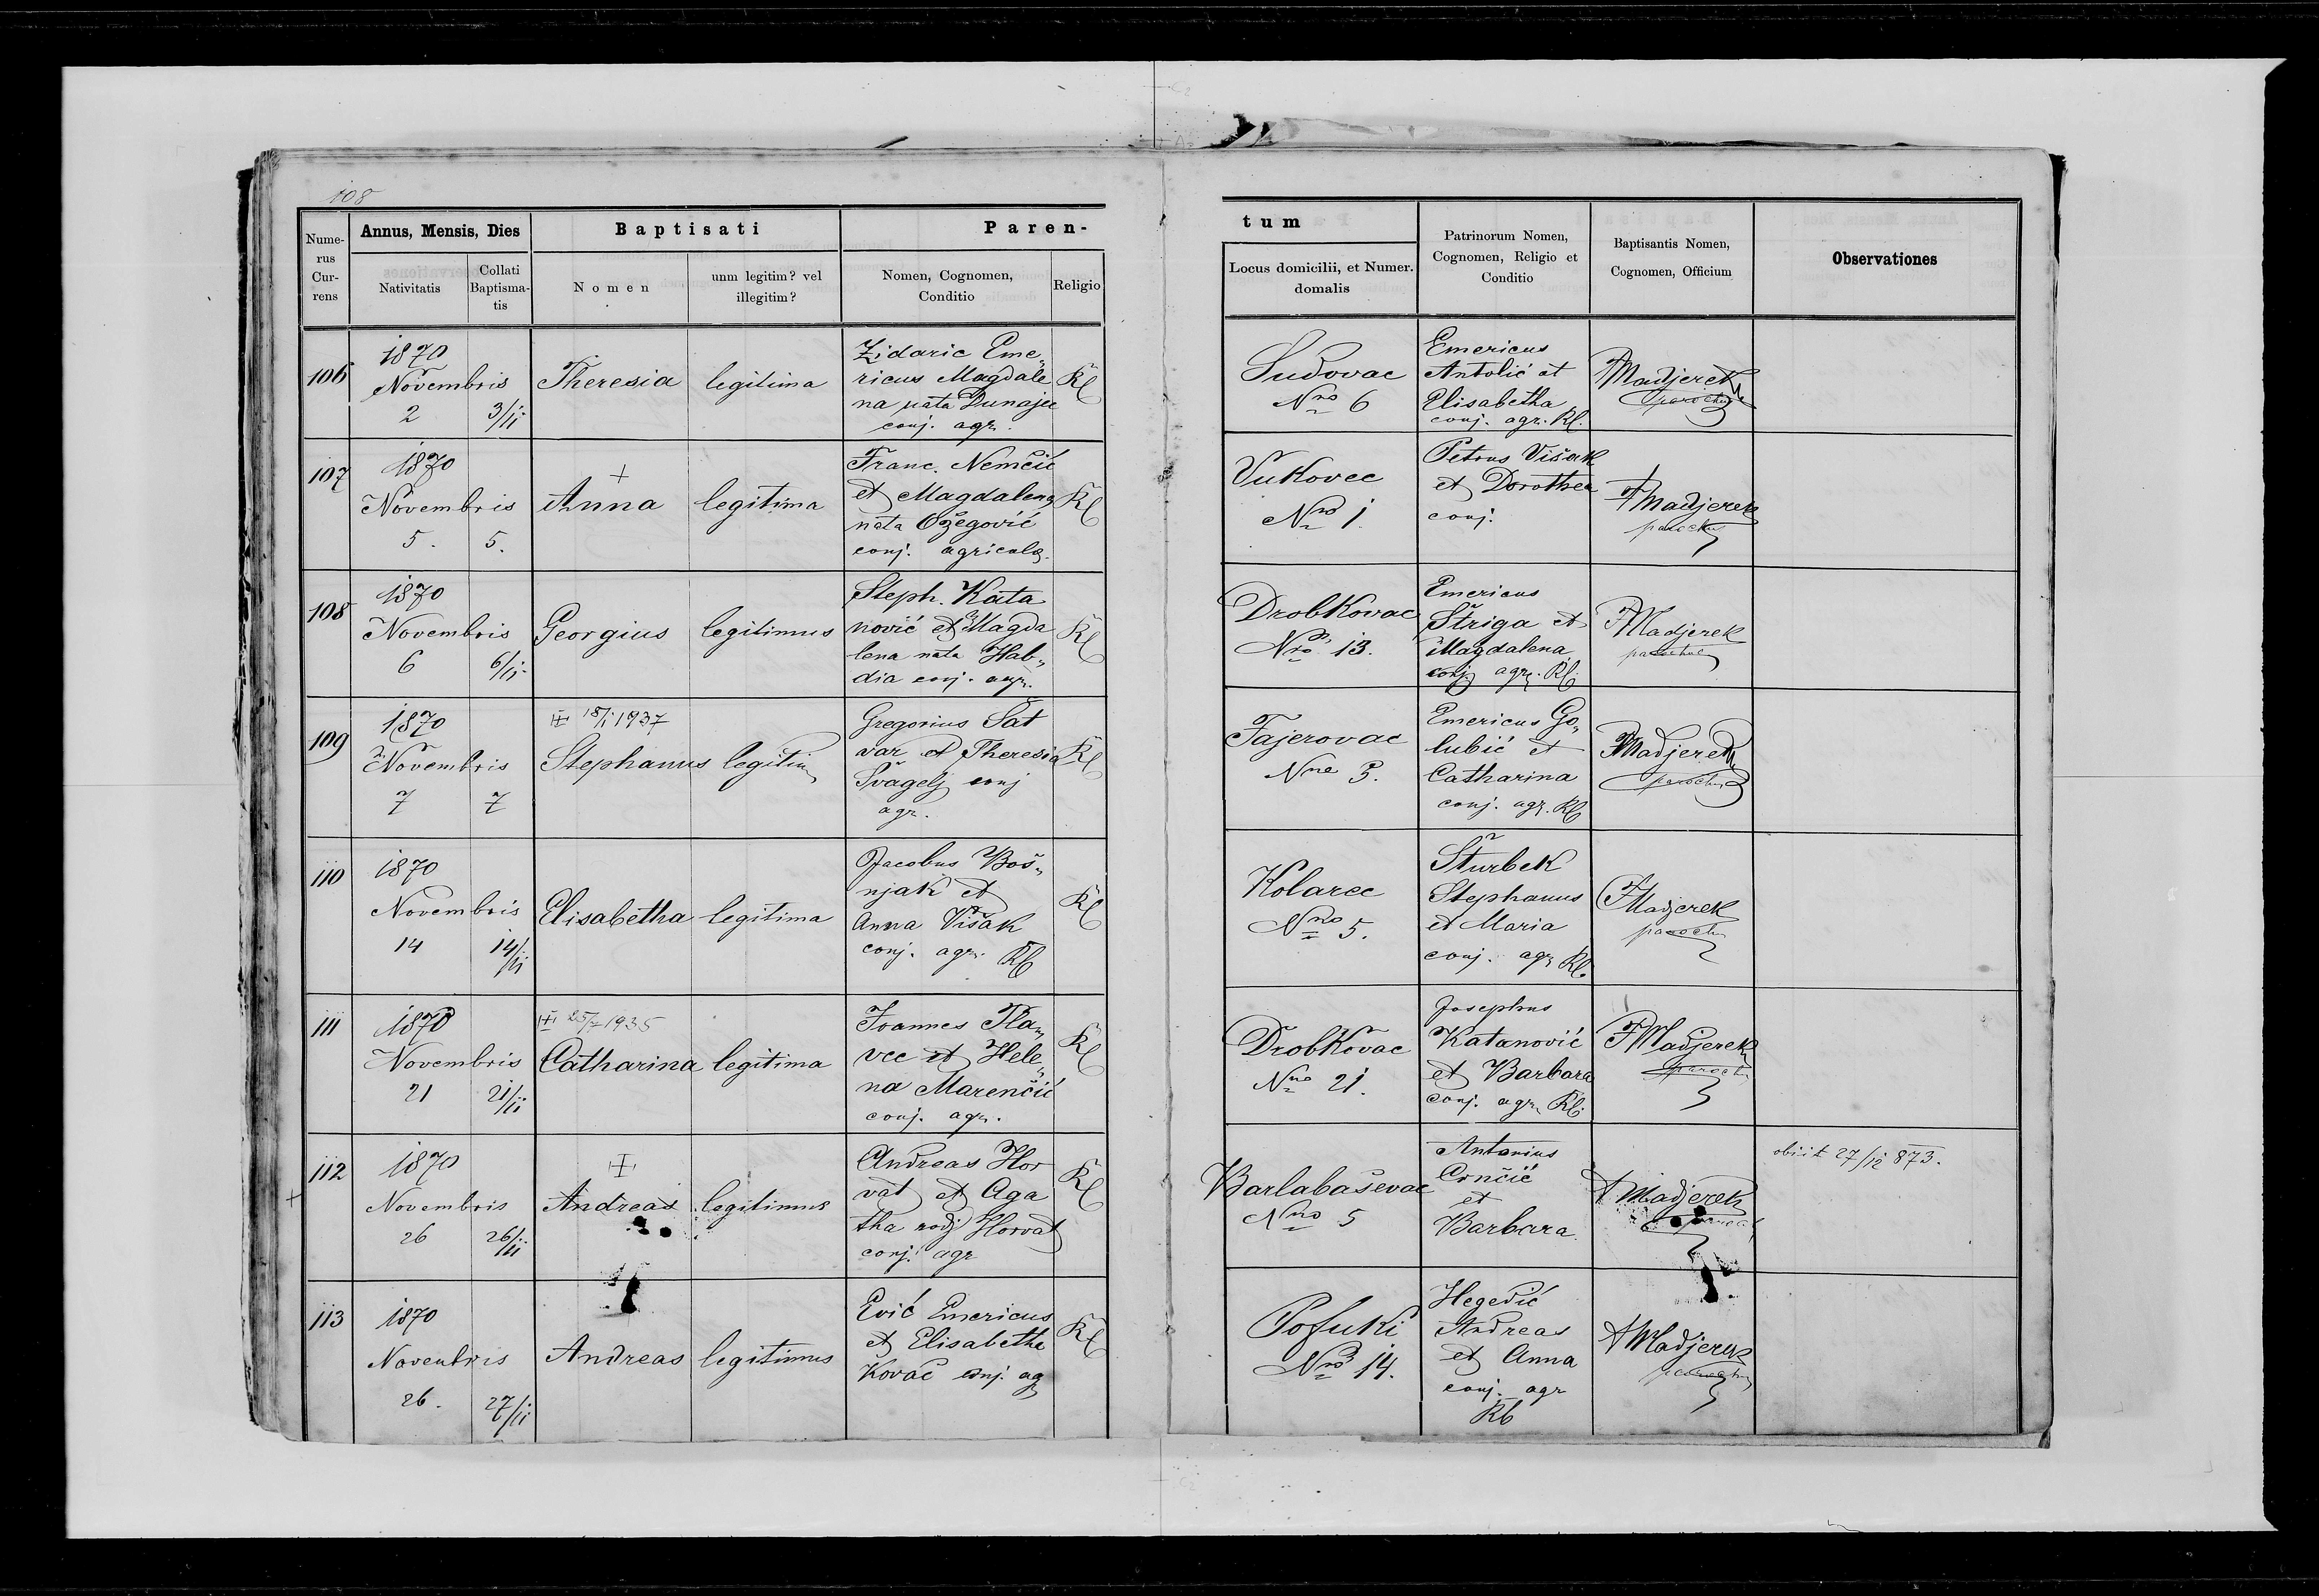 108
Nume-
rus
Cur-
rens
Annus, Mensis, Dies
Nativitatis
Collati
Baptisma-
tis
Baptisati
Nomen
unm legitim? vel
illegitim?
Paren-
Nomen, Cognomen,
Conditio
Religio
tum
Locus domicilii, et Numer.
domalis
Patrinorum Nomen,
Cognomen, Religio et
Conditio
Baptisantis Nomen,
Cognomen, Officium
Observationes
106
1870
Novembris
2
3/11
Theresia
legitima
Zidaric Eme„
ricus Magdale
na nata Dunajec
conj. agr.
RC
Sudovac
Nro 6
Emericus
Antolić et
Elisabetha
conj. agr. RC.
FMadjerek
parochus
107
1870
Novembris
5.
5.
+
Anna
legitima
Franc. Nemčić
et Magdalena
nata Ožegović
conj. agricolæ.
RC
Vukovec
Nro 1.
Petrus Višak
et Dorothea
conj.
FMadjerek
parochus
108
1870
Novembris
6
6/11
Georgius
legitimus
Steph. Kata
nović et Magda
lena nata Hab„
dia conj. agr.
RC
Drobkovac
Nro 13.
Emericus
Štriga et
Magdalena
conj agr. RC.
FMadjerek
parochus
109
1870
Novembris
7
7
18/1 1937
Stephanus
legitim
Gregorius Šat
var et Theresia
Švagelj conj
agr.
RC
Fajerovac
Nro 3.
Emericus Go„
lubić et
Catharina
conj. agr. RC
FMadjerek
parochus
110
1870
Novembris
14
14/11
Elisabetha
legitima
Jacobus Boš„
njak et
Anna Višak
conj. agr. RC
RC
Kolarec
Nro 5.
Šturbek
Stephanus
et Maria
conj. agr RC.
FMadjerek
paroch
111
1870
Novembris
21
21/11
25/7 1935
Catharina
legitima
Joannes Pla„
vec et Hele„
na Marenčić
conj. agr.
RC
Drobkovac
Nro 21.
Josephus
Katanović
et Barbara
conj. agr. RC.
FMadjerek
paroch
112
+
1870
Novembris
26
26/11
+
Andreas
legitimus
Andreas Hor
vat et Aga
tha rodj Horvat
conj. agr
RC
Barlabaševac
Nro 5
Antonius
Crnčić
et
Barbara
FMadjerek
paroch
obiit 27/12 873.
113
1870
Novembris
26.
27/11
Andreas
legitimus
Ević Emericus
et Elisabetha
Kovač conj. ag
RC
Pofuki
Nro 14.
Hegedić
Andreas
et Anna
conj. agr
RC
FMadjerek
parochus